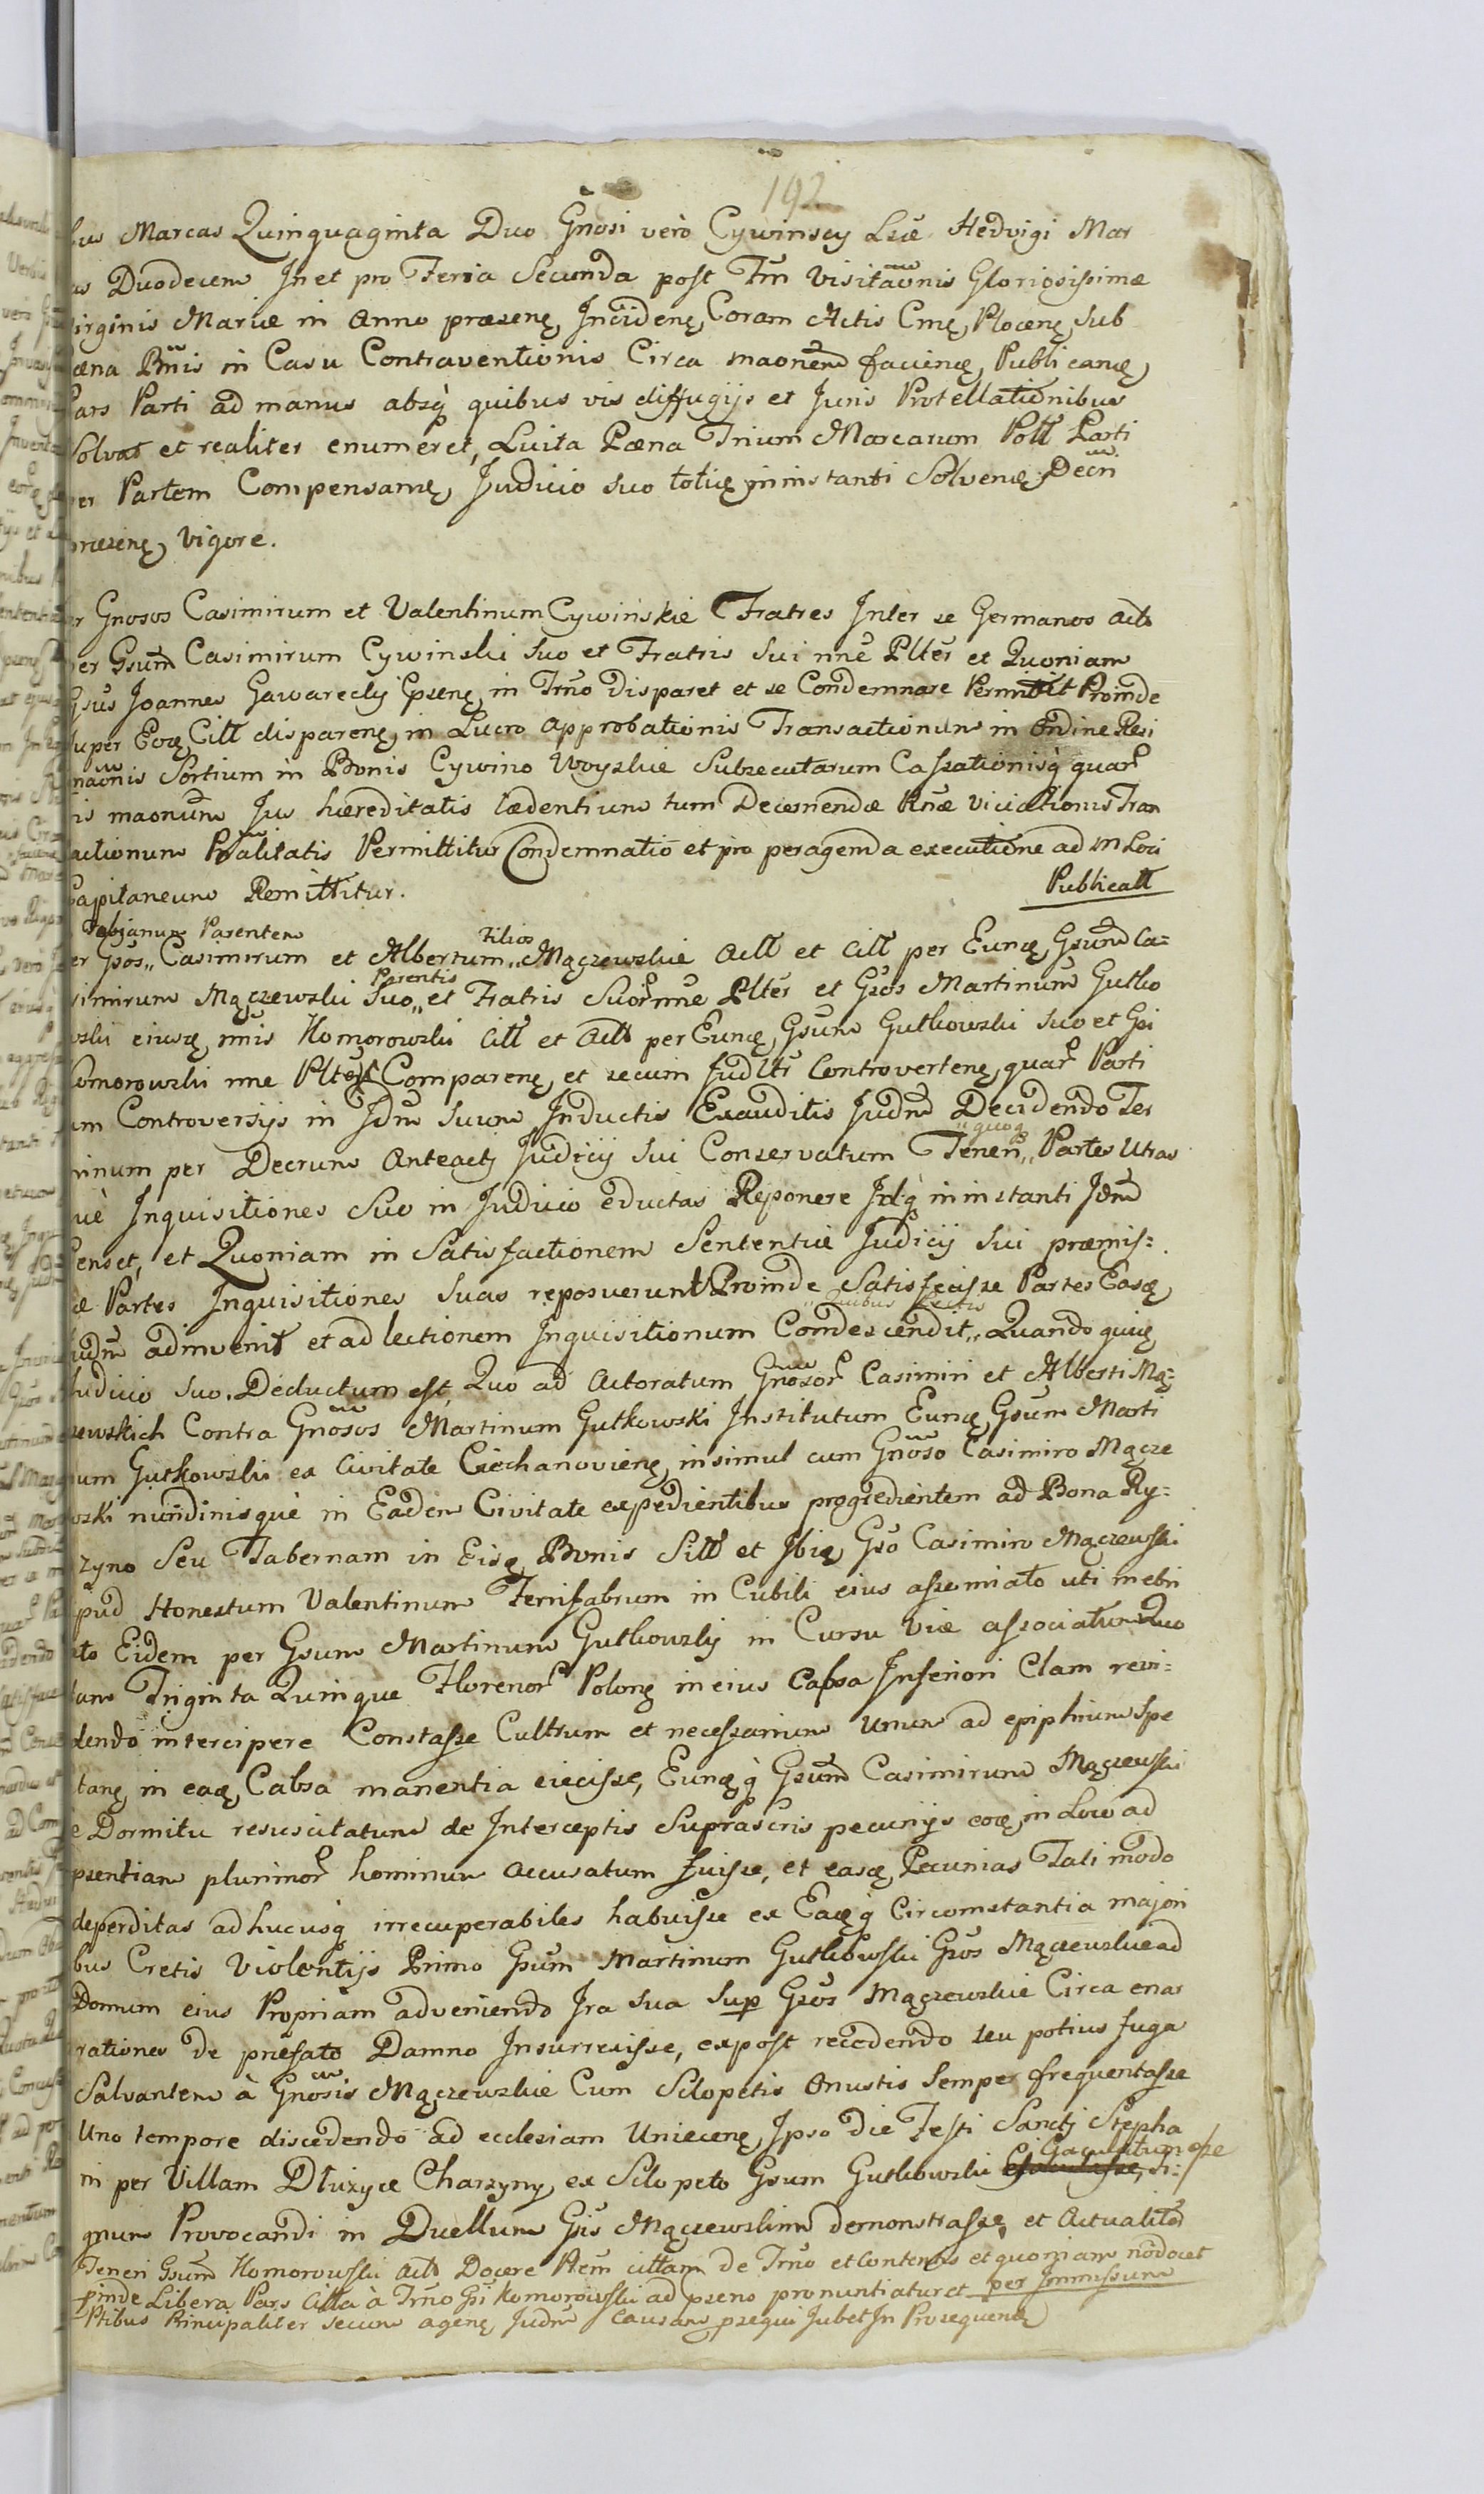 192
bus Marcas Quinquaginta Duo Gnosi verò Cywinscy Lsæ Hedvigi Mar
as Duodecem In et pro Feria Secunda post Ftm Visitaōnis Gloriosissimæ
Virginis Mariæ in Anno præsenę, Incidenę, Coram Actis Cmę, Plocenę, Sub
pæna Bnis in Casu Contraventionis Circa maonem facienę, Publicanę,
Pars Parti ad manus absq̀ quibus vis diffugijs et Juris Protellationibus
Solvat et realiter enumeret, Luita Pæna Trium Marcarum Poll Parti
per Partem Compensanę, Judicio suo totię, in instanti Solvenę, Decn
præsenę, vigore.
er Gnosos Casimirum et Valentinum Cywinskie Fratres Inter se Germanos Acto
per Gsum Casimirum Cywinski suo et Fratris Sui nne Plter et Quoniam
Gsus Joannes Gawarecky Cpsenę, in Trno disparet et se Condemnare Permittit Proinde
super Eoę, Citt disparenę, in Lucro approbationis Transactionum in Ordine Resi
naōnis Sortium in Bonis Cywino Woyskie Subsecutarum Cassationisq̀ quar
is maonum Jus hæreditatis lædentium tum Decernendæ Pnæ viciationis Tran
actionum Rōalitatis Permittitur Condemnatio et pro peragenda executione ad m Loci
Capitaneum Remittitur. Publicatt
Fabianum Parentem
er Gsos,, Casimirum et Albertum,, Mączewskie Actt et Citt per Eunę, Gsum Ca=
Filios
simirum Mączewski Suo,, et Fratris Suor nne Plter et Gsos Martinum Gutko
Parentis
wski eiusę, nnis Komorowski Citt et Actt per Eunę, Gsum Gutkowski suo et Gsi
Komorowski nne Plter Comparenę, et secum Judltr Controvertenę, quar Parti
um Controversijs in Jdm suum Inductis Exauditis Judm Decidendo Ter
minum per Decrum Anteacty Judicij Sui Conservatum Tenen,, Partes Utras
,,quoq
què Inquisitiones Suo in Judicio eductas Reponere Idq̀ in instanti Jdm
Censet, et Quoniam in Satisfactionem Sententiæ Judicij Sui præmis=
sæ Partes Inquisitiones Suas reposuerunt Proinde Satisfecisse Partes Easę,
Judm adinvenit et ad lectionem Inquisitionum Condescendit,, Quando quię,
,,Quibus Lectis
Judicio suo Deductum est, Quo ad Actoratum Gnosor Casimiri et Alberti Mą=
czewskich Contra Gnosos Martinum Gutkowski Institutum Eunę, Gsum Marti
num Gutkowski ex Civitate Ciechanovienę, insimul cum Gnoso Casimiro Mącze
wski nundinisquè in Eadem Civitate expedientibus progredientem ad Bona Ry=
zyno Seu Tabernam in Eisę, Bonis Sitt et Ibię, Gso Casimiro Mączewski
apud Honestum Valentinum Ferrifabrum in Cubili eius assomiato uti inebri
ato Eidem per Gsum Martinum Gutkowsky in Cursu Viæ associatum Quo
tam Triginta Quinque Florenor Polonę, in eius Capsa Inferiori Clam revi=
dendo intercipere Constasse Cultrum et necessarium unum ad epiphium Spe
ctanę, in eaę, Cabsa manentia eiecisse, Eunęq̀ Gsum Casimirum Mączewski
è Dormitu resuscitatum de Interceptis Suprascris pecunijs eoę, in Loco ad
psentiam plurimor hominum accusatum fuisse, et easę, Pecunias Tali modo
deperditas ad hucusq̀ irrecuperabiles habuisse ex Eaęq̀ Circumstantia majori
bus Cretis Violentijs Primo Gsum Martinum Gutkowski Gsos Mączewskie ad
Domum eius Propriam adveniendo Ira sua sup Gsos Mączewskie Circa enar
rationes de præfato Damno Insurrexisse, expost recedendo seu potius fuga
Salvantem à Gnosis Mączewskie Cum Sclopetis Onustis Semper frequentasse
Uno tempore discedendo ad ecclesiam Uniecenę, Ipso die Festi Sancti Stepha
ni per Villam Dłużyce Charzyny, ex Sclopeto Gsum Gutkowski Si=
Eiaculatum esse
gnum Provocandi in Duellum Gsis Mączewskim demonstrasse, et Actualiter
Teneri Gsum Komorowski Acto Docere Rem cittam de Trno et Contentis et quoniam nō docet
pinde Libera Pars Citta à Trno Gsi Komorowski ad pseno pronuntiatur et per Immissum
Ptibus Principaliter secum agenę, Judm Causam psequi Jubet In Prosequenę,